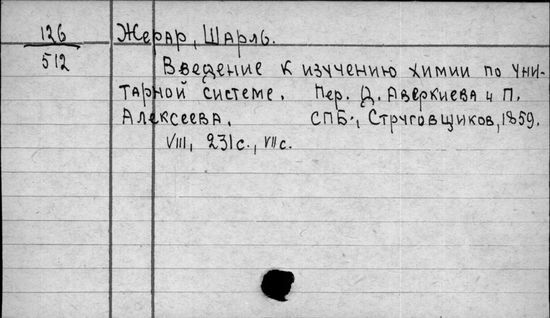 126 Жерар, Шарль.
512 Введение к изучению химии по уни-
тарной системе. Пер. Д. Аверкиева и П.
Алексеева. СПБ., Струговщиков, 1859.
VIII, 231с., VII с.